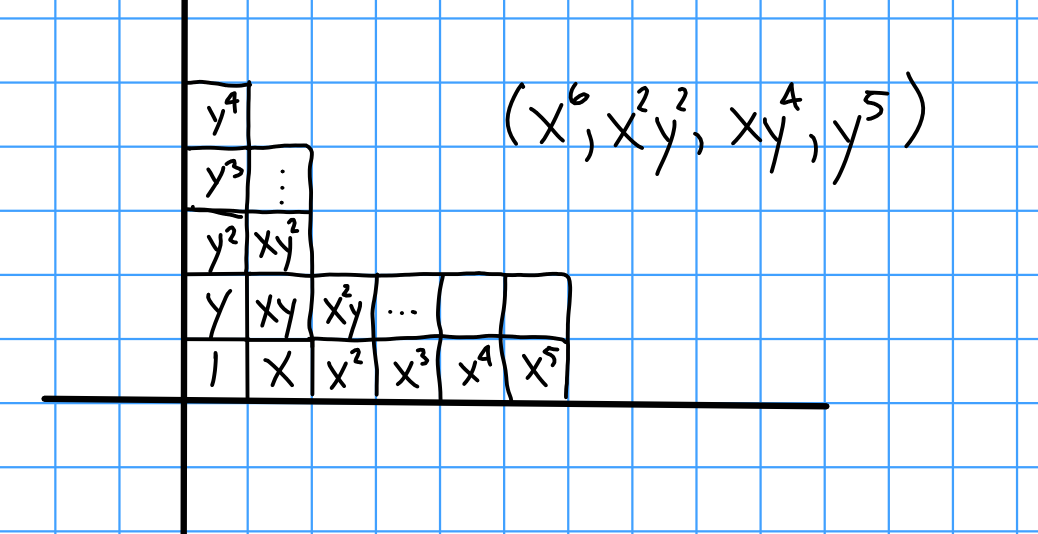 (x⁶, x²y², xy⁴, y⁵)
y⁴
y³ ⋮
y² xy²
y xy x²y ...
1 x x² x³ x⁴ x⁵